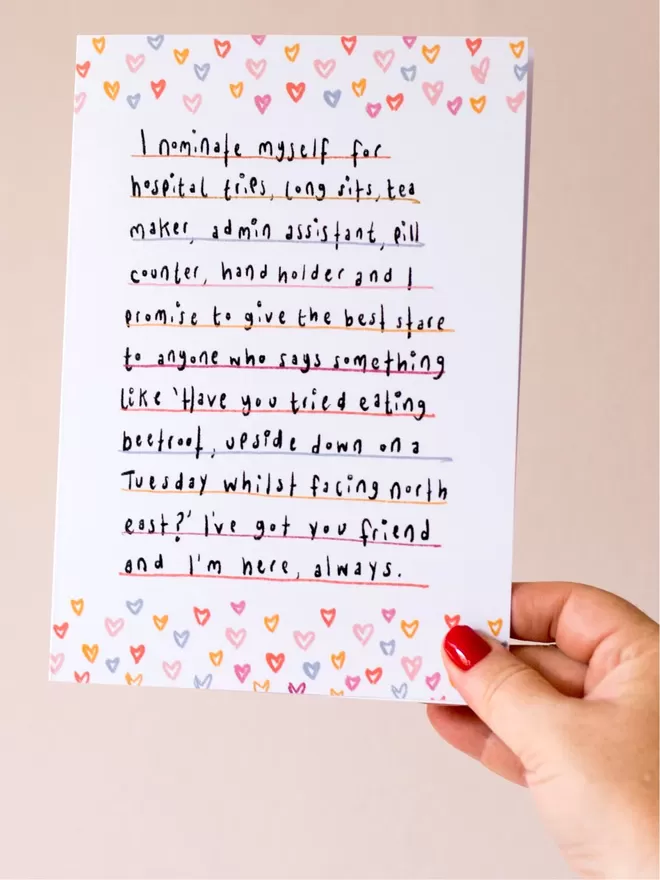 I nominate myself for
hospital trips, long sits, tea
maker, admin assistant, pill
counter, hand holder and I
promise to give the best stare
to anyone who says something
like 'Have you tried eating
beetroot, upside down on a
Tuesday whilst facing north
east?' I've got you friend
and I'm here, always.